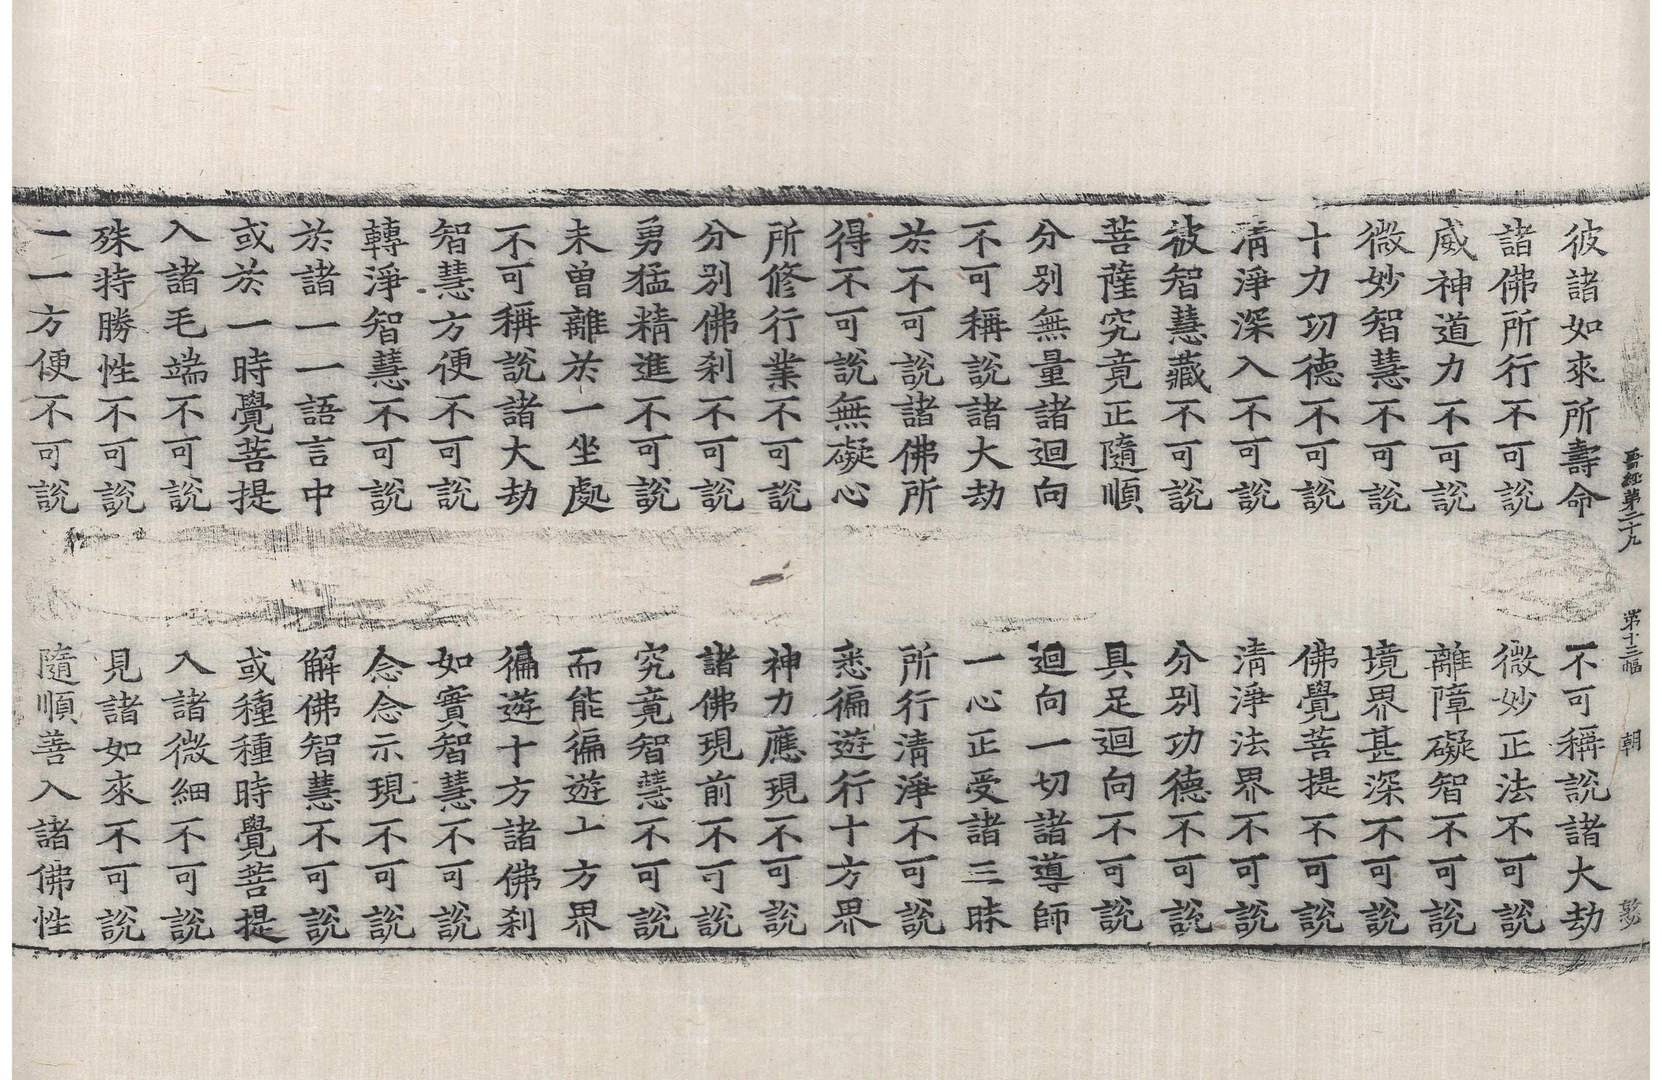 晉經第二十九　第十三幅　朝
彼諸如來所壽命　不可稱說諸大劫
諸佛所行不可說　微妙正法不可說
威神道力不可說　離障礙智不可說
微妙智慧不可說　境界甚深不可說
十力功德不可說　佛覺菩提不可說
清淨深入不可說　清淨法界不可說
彼智慧藏不可說　分別功德不可說
菩薩究竟正隨順　具足迴向不可說
分別無量諸迴向　迴向一切諸導師
不可稱說諸大劫　一心正受諸三昧
於不可說諸佛所　所行清淨不可說
得不可說無礙心　悉徧遊行十方界
所修行業不可說　神力應現不可說
分別佛刹不可說　諸佛現前不可說
勇猛精進不可說　究竟智慧不可說
未曾離於一坐處　而能徧遊十方界
不可稱說諸大劫　徧遊十方諸佛刹
智慧方便不可說　如實智慧不可說
轉淨智慧不可說　念念示現不可說
於諸一一語言中　解佛智慧不可說
或於一時覺菩提　或種種時覺菩提
入諸毛端不可說　入諸微細不可說
殊特勝性不可說　見諸如來不可說
一一方便不可說　隨順善入諸佛性